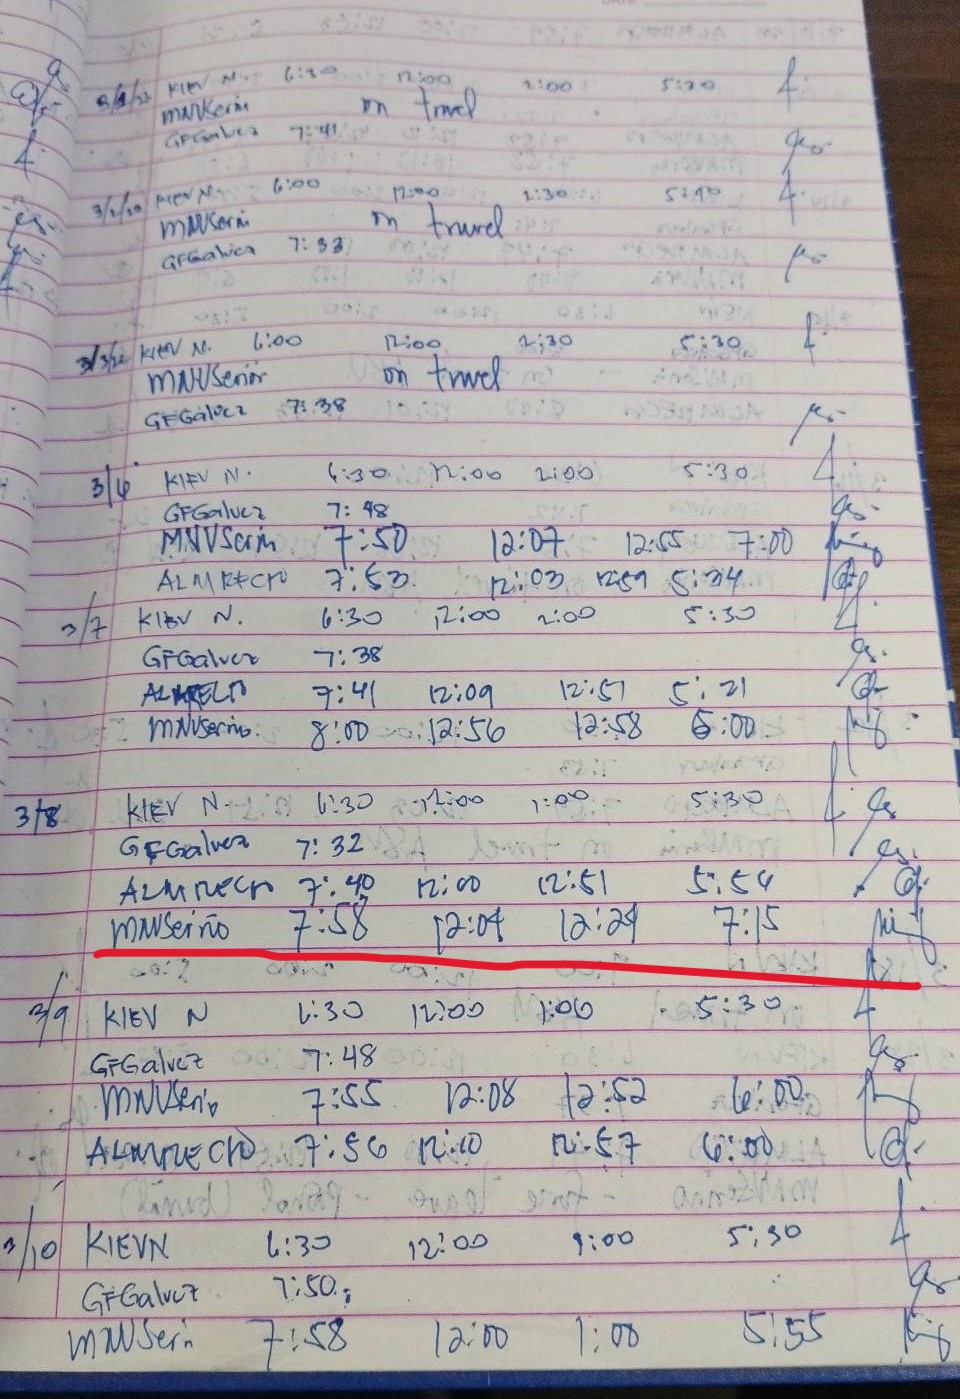 KIEV N. 6:30 12:00 2:00 5:30
MNVSerin on travel
GFGalvez 7:41
KIEV N. 6:00 12:00 1:30
MNVSerin on travel
GFGalvez 7:33
KIEV N. 6:00 12:00 1:30 5:30
MNVSerior on travel
GFGalvez 7:38
3/6 KIEV N. 6:30 12:00 2:00 5:30
GFGalvez 7:48
MNVSerin 7:50 12:07 12:55 7:00
ALMRECHO 7:53 12:03 12:59 5:34
3/7 KIEV N. 6:30 12:00 2:00 5:30
GFGalvez 7:38
7:41 12:09 12:51 5:21
MNVSerino 8:00 12:56 12:58 6:00
3/8 KIEV N. 6:30 12:00 1:00 5:30
GFGalvez 7:32
ALMRECHO 7:40 12:00 12:51 5:54
MNVSeriño 7:58 12:04 12:24 7:15
3/9 KIEV N 6:30 12:00 1:00 5:30
GFGalvez 7:48
MNVSerio 7:55 12:08 12:52 6:00
ALMRECHO 7:56 12:10 12:57 6:00
3/10 KIEVN 6:30 12:00 1:00 5:30
GFGalvez 7:50
MNVSerin 7:58 12:00 1:00 5:55